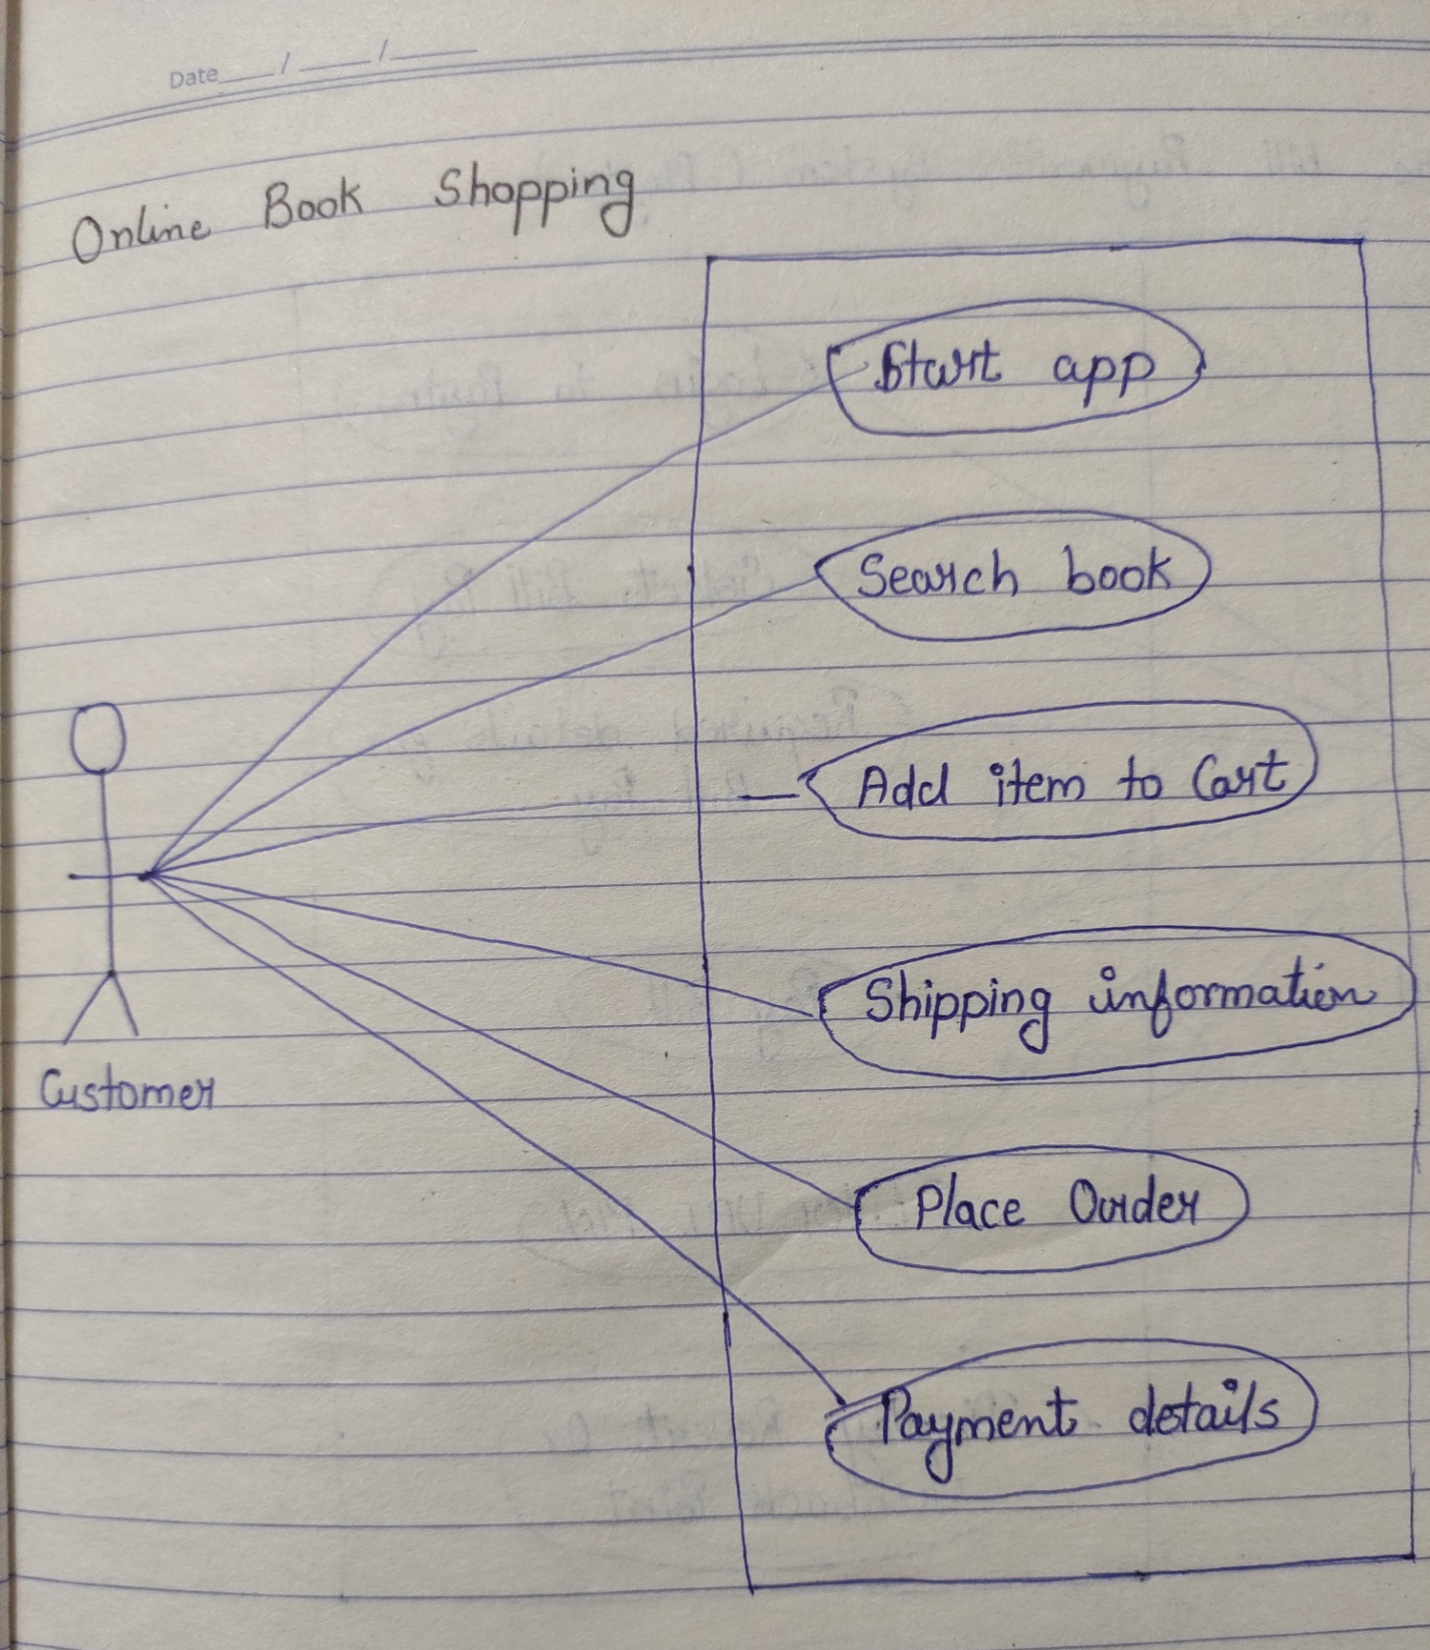 Date ___/___/___
Online Book Shopping
Start app
Search book
Add item to Cart
Shipping information
Customer
Place Order
Payment details